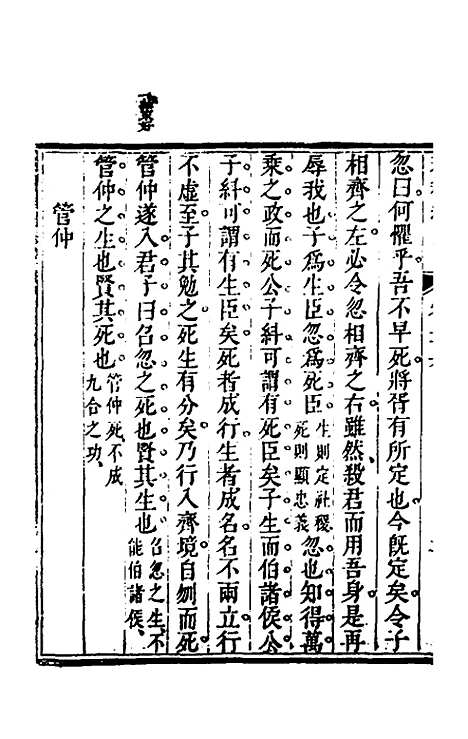 忽曰何懼乎吾不早死將胥有所定也今旣定矣令子
相齊之左必令忽相齊之右雖然殺君而用吾身是再
辱我也子爲生臣忽爲死臣生則定社稷死則顯忠義忽也知得萬
乘之政而死公子糾可謂有死臣矣子生而伯諸侯公
子糾可謂有生臣矣死者成行生者成名名不兩立行
不虛至子其勉之死生有分矣乃行入齊境自刎而死
管仲遂入君子曰召忽之死也賢其生也召忽之生不能伯諸侯
管仲之生也賢其死也管仲死不成九合之功
管仲